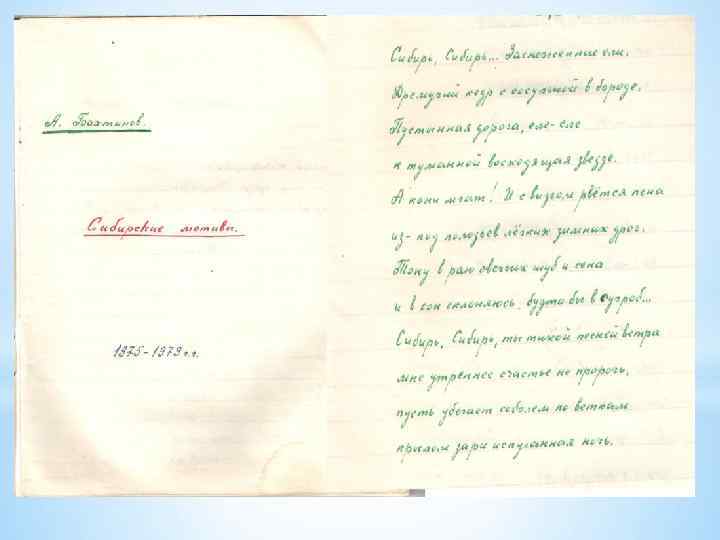 А. Бахтинов.
Сибирские мотивы.
1975-1979 г.г.
Сибирь, Сибирь... Заснеженные ели.
Дремучий кедр с сосулькой в бороде.
Пустынная дорога, еле-еле
к туманной восходящая звезде.
А кони мчат! И с визгом рвётся пена
из-под полозьев лёгких зимних дрог.
Тону в раю овечьих шуб и сена
и в сон склоняюсь, будто бы в сугроб...
Сибирь, Сибирь, ты тихой песней ветра
мне утреннее счастье не пророчь.
пусть убегает соболем по веткам
зари испуганная ночь.